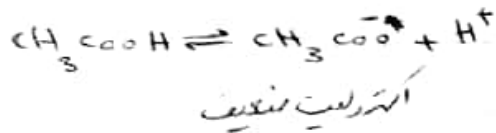 CH₃COOH ⇌ CH₃COO⁻ + H⁺
الکترولیت ضعیف